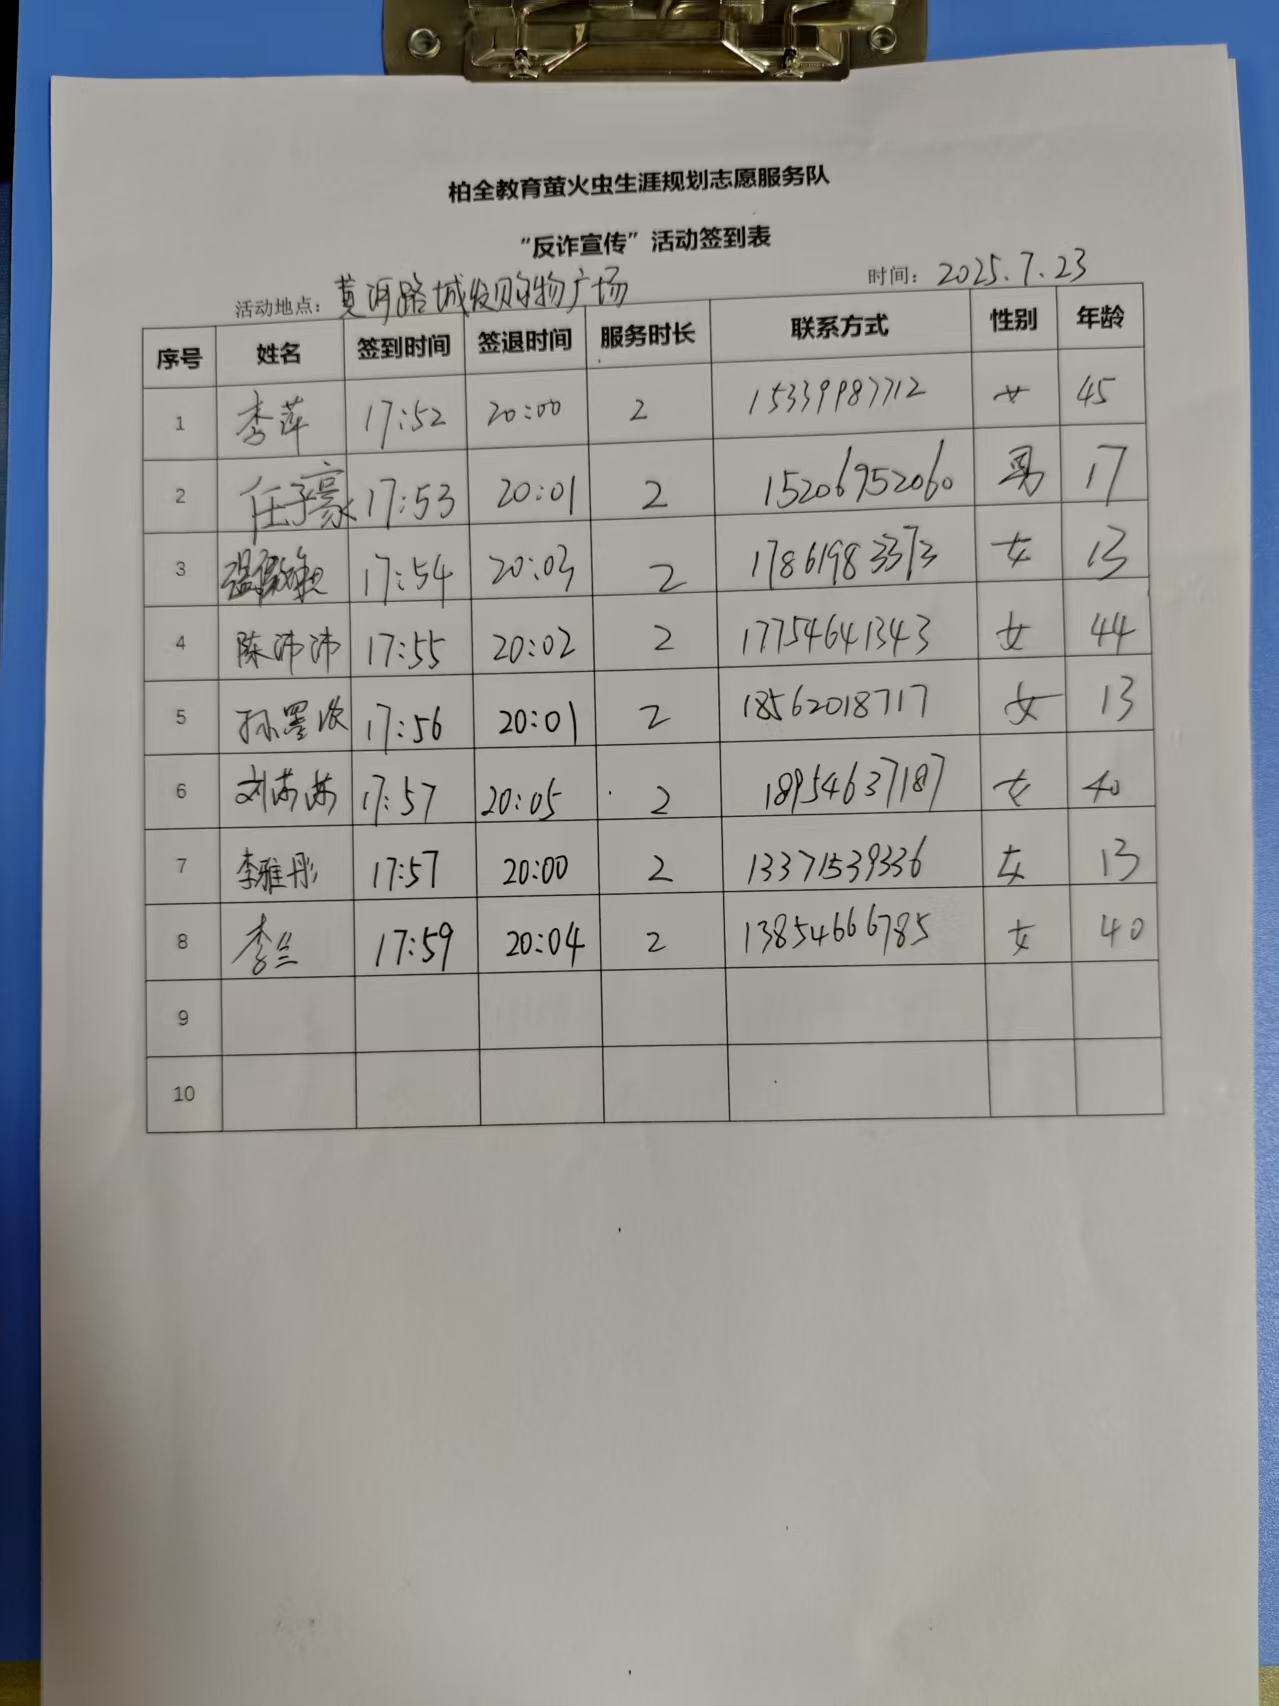 柏全教育萤火虫生涯规划志愿服务队
“反诈宣传”活动签到表
活动地点：黄河路城发购物广场 时间：2025.7.23
序号 姓名 签到时间 签退时间 服务时长 联系方式 性别 年龄
1 李萍 17:52 20:00 2 15339987712 女 45
2 任子豪 17:53 20:01 2 15206952060 男 17
3 17:54 20:03 2 17861983373 女 13
4 陈沛沛 17:55 20:02 2 17754641343 女 44
5 孙墨 17:56 20:01 2 18562018717 女 13
6 刘苏苏 17:57 20:05 2 18954637187 女 40
7 李雅彤 17:57 20:00 2 13371539336 女 13
8 李兰 17:59 20:04 2 13854666785 女 40
9
10